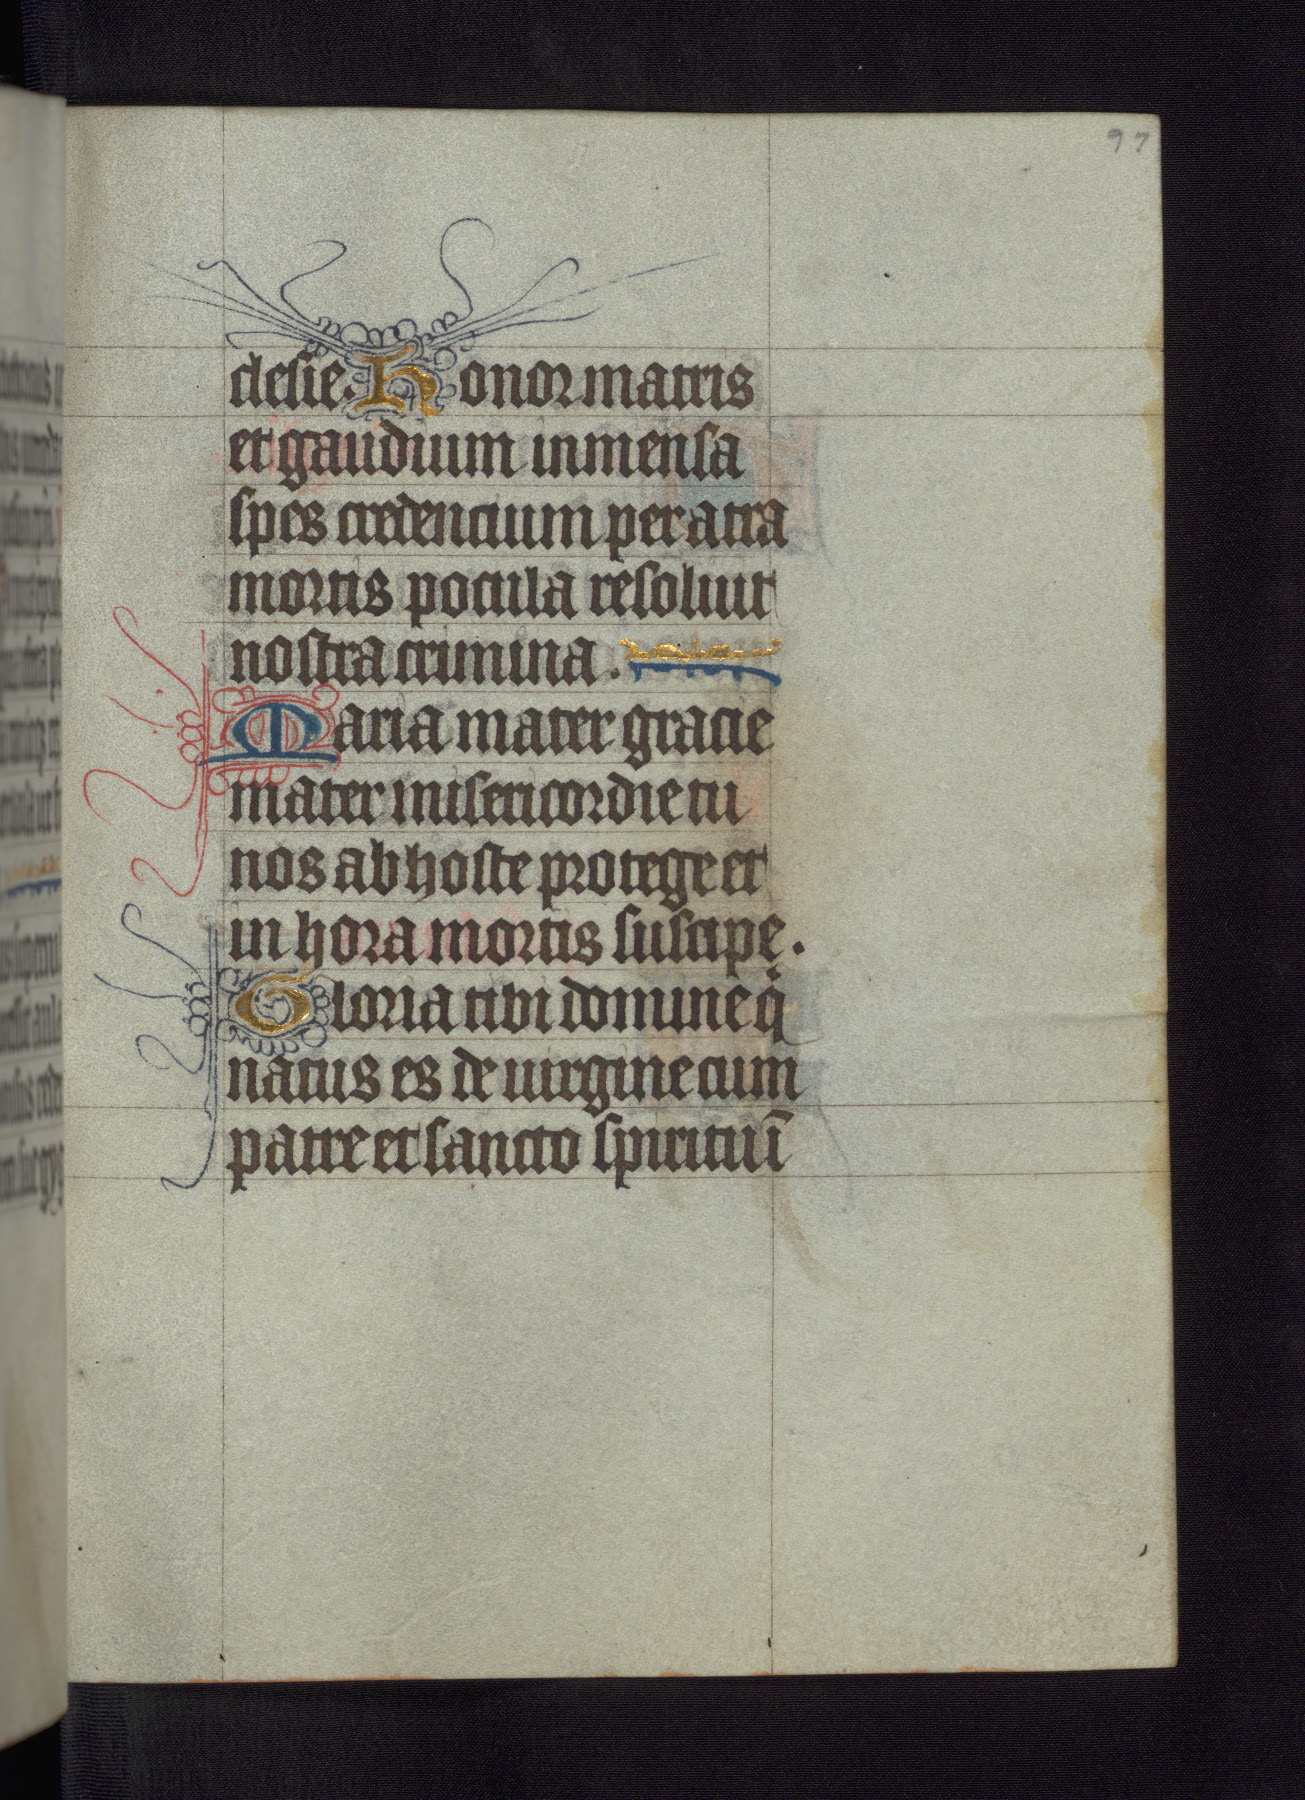 97
clesie. Honor matris
et gaudium inmensa
spes credencium per atra
mortis pocula resoluit
nostra crimina.
Maria mater gracie
mater misericordie tu
nos ab hoste protege et
in hora mortis suscipe.
Gloria tibi domine qͥ
natus es de uirgine cum
patre et sancto spiritu ī